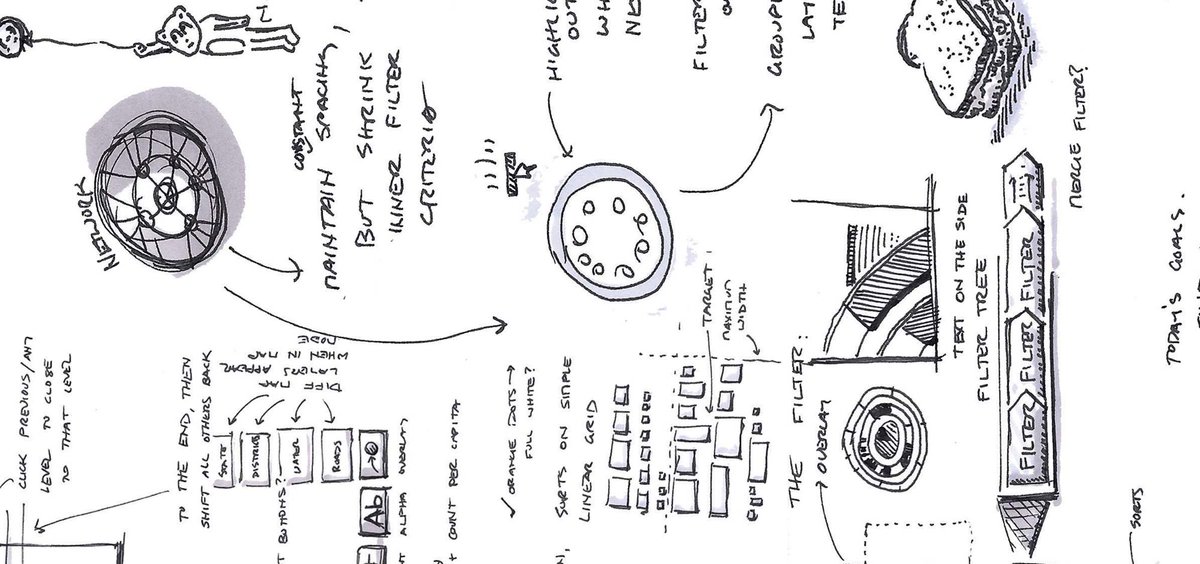 NETWORK
CONSTANT
MAINTAIN SPACING,
BUT SHRINK
INNER FILTER
CRITERIA
HIGHLIG
OUT
WH
FILTER
O
GROUPE
LAT
TE
CLICK PREVIOUS/ANY
LEVEL TO CLOSE
TO THAT LEVEL
TO THE END, THEN
SHIFT ALL OTHERS BACK
DIFF MAP
LAYERS APPEAR
WHEN IN MAP
MODE
STATE
DISTRICT
WATER
ROADS
T BOTTOMS?
Ab
T ALPHA OVERLAY
+ COUNT PER CAPITA
ORANGE DOTS →
FULL WHITE?
SORTS ON SIMPLE
LINEAR GRID
TARGET
MAXIMUM
WIDTH
THE FILTER:
OVERLAY
TEXT ON THE SIDE
FILTER TREE
FILTER FILTER FILTER
MERGE FILTER?
SORTS
TODAY'S GOALS.